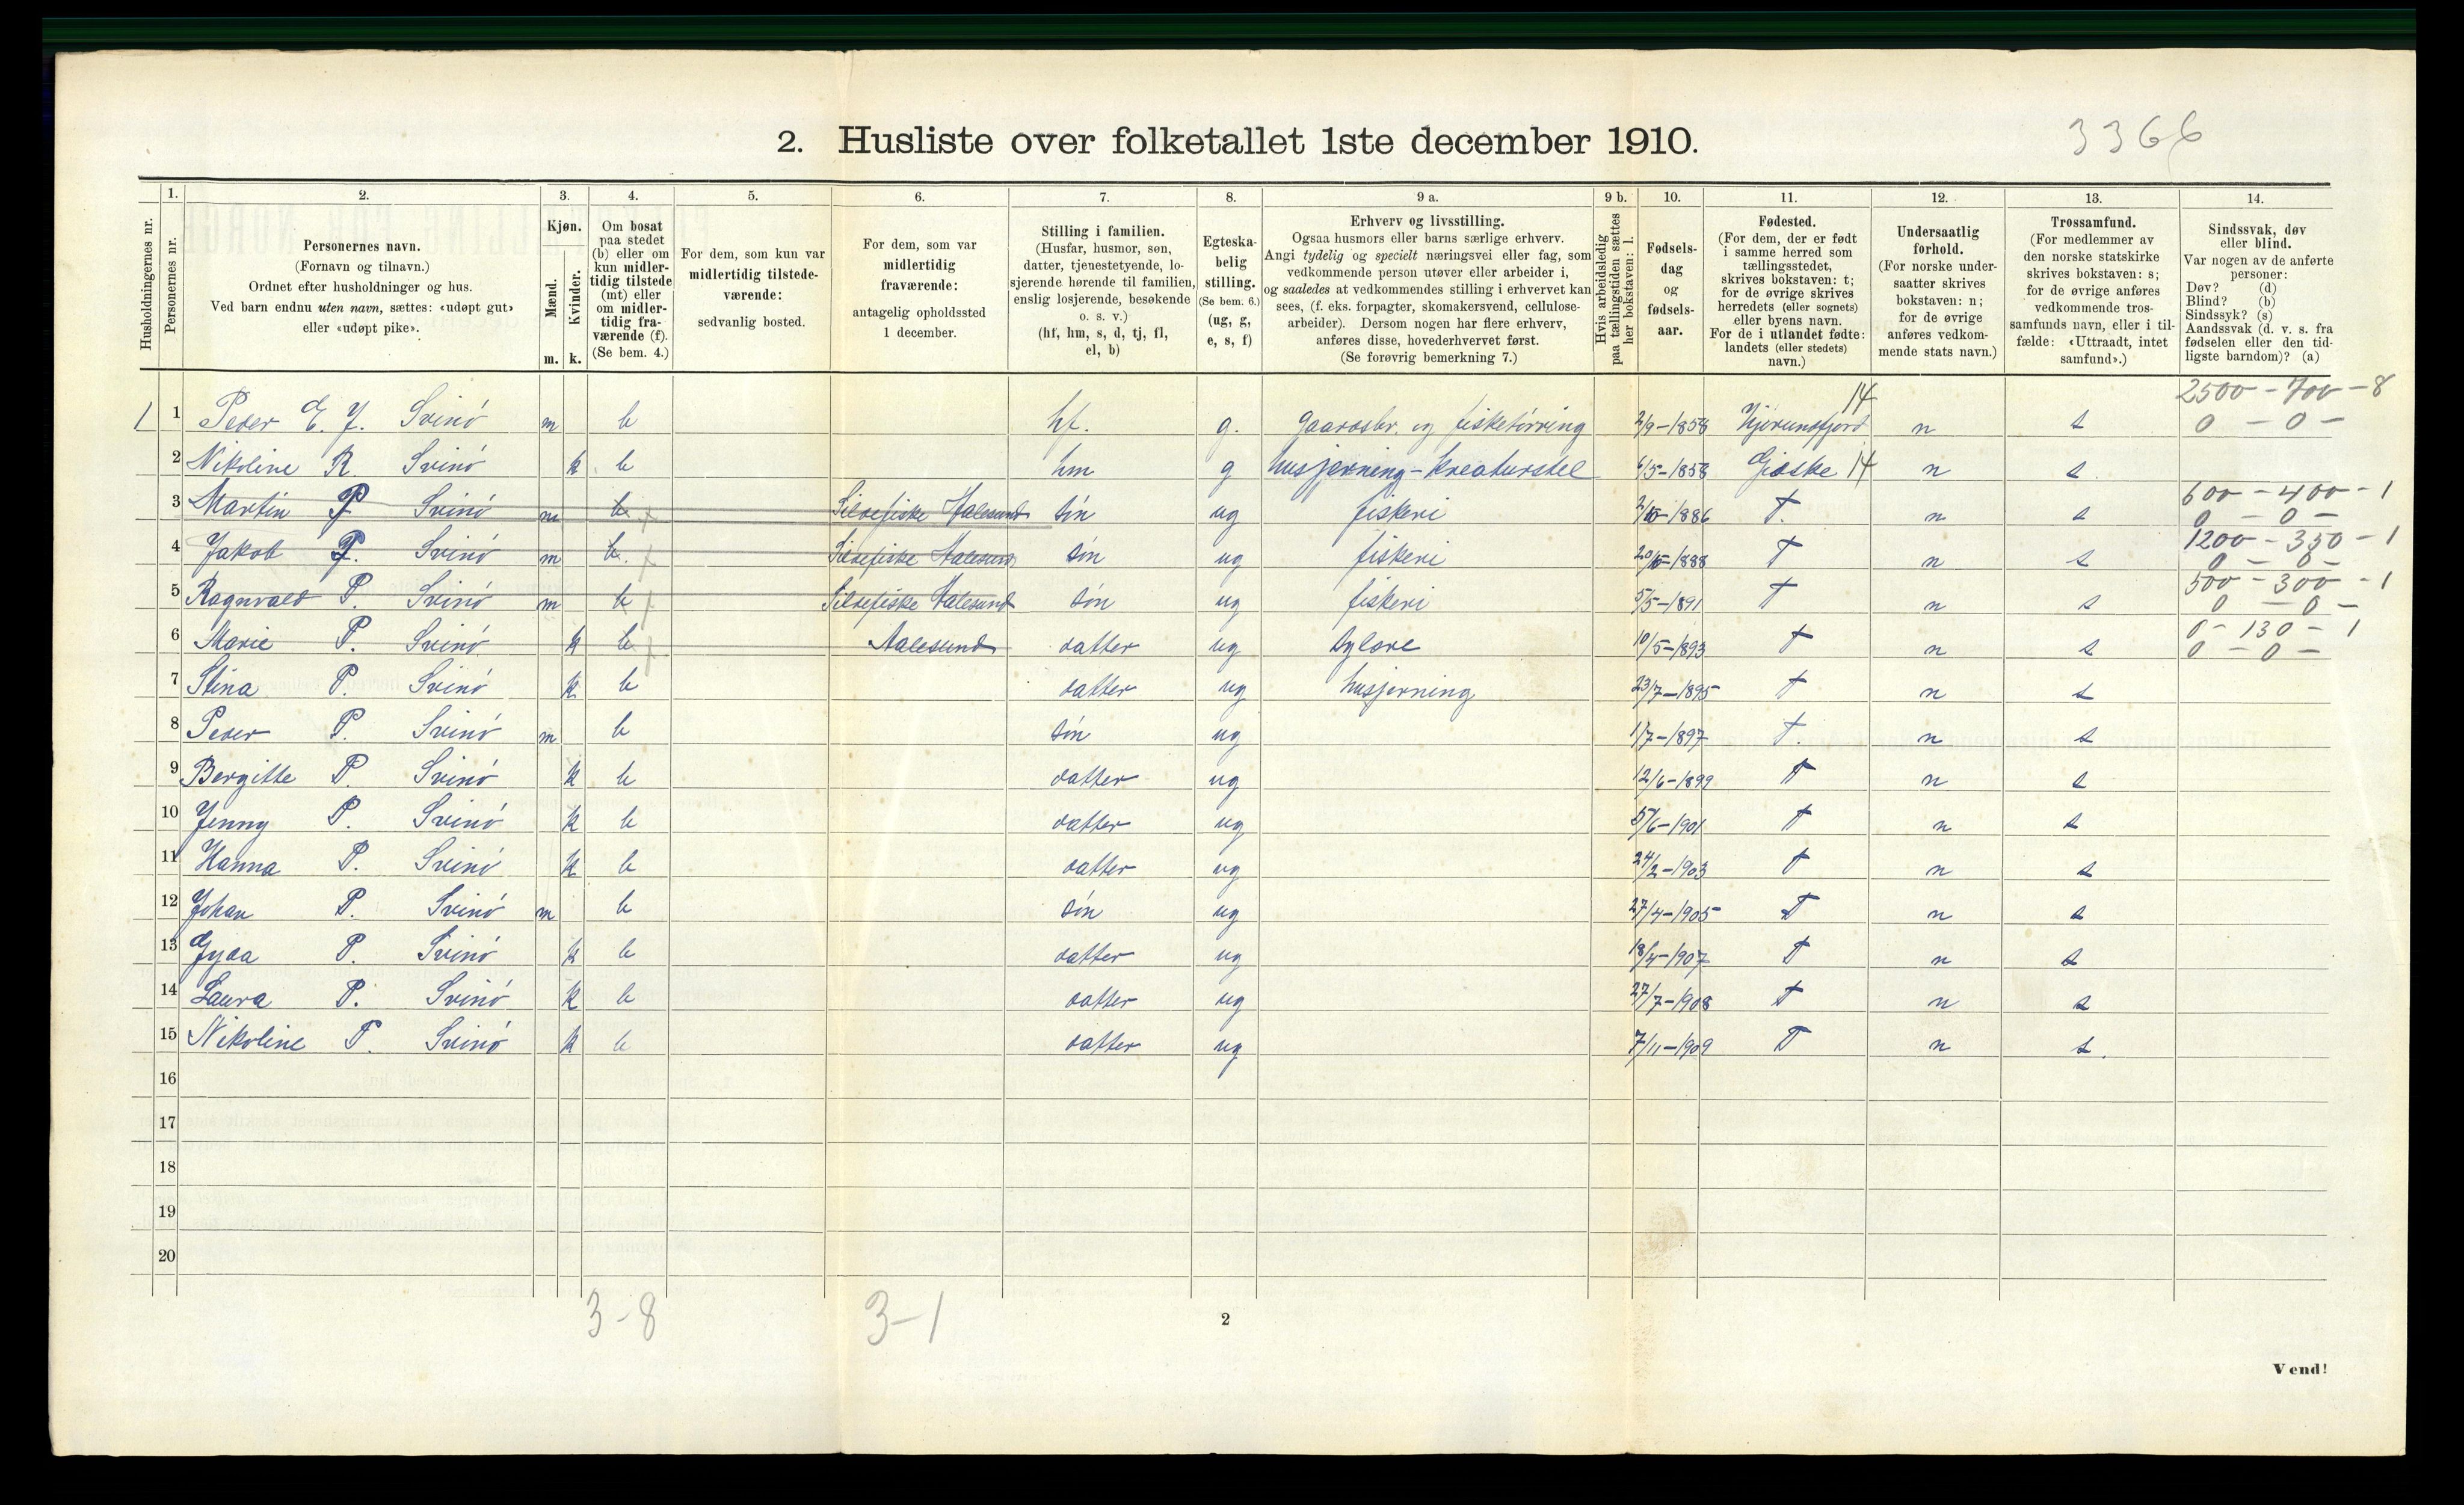 2. Husliste over folketallet 1ste december 1910.
3366
Husholdningernes nr.
1. Personernes nr.
2. Personernes navn. (Fornavn og tilnavn.) Ordnet efter husholdninger og hus. Ved barn endnu uten navn, sættes: «udøpt gut» eller «udøpt pike».
3. Kjøn. Mænd. m. Kvinder. k.
4. Om bosat paa stedet (b) eller om kun midlertidig tilstede (mt) eller om midlertidig fraværende (f). (Se bem. 4.)
5. For dem, som kun var midlertidig tilstedeværende: sedvanlig bosted.
6. For dem, som var midlertidig fraværende: antagelig opholdssted 1 december.
7. Stilling i familien. (Husfar, husmor, søn, datter, tjenestetyende, losjerende hørende til familien, enslig losjerende, besøkende o. s. v.) (hf, hm, s, d, tj, fl, el, b)
8. Egteskabelig stilling. (Se bem. 6.) (ug, g, e, s, f)
9 a. Erhverv og livsstilling. Ogsaa husmors eller barns særlige erhverv. Angi tydelig og specielt næringsvei eller fag, som vedkommende person utøver eller arbeider i, og saaledes at vedkommendes stilling i erhvervet kan sees, (f. eks. forpagter, skomakersvend, cellulosearbeider). Dersom nogen har flere erhverv, anføres disse, hovederhvervet først. (Se forøvrig bemerkning 7.)
9 b. Hvis arbeidsledig paa tællingstiden sættes her bokstaven: l.
10. Fødselsdag og fødselsaar.
11. Fødested. (For dem, der er født i samme herred som tællingsstedet, skrives bokstaven: t; for de øvrige skrives herredets (eller sognets) eller byens navn. For de i utlandet fødte: landets (eller stedets) navn.)
12. Undersaatlig forhold. (For norske undersaatter skrives bokstaven: n; for de øvrige anføres vedkommende stats navn.)
13. Trossamfund. (For medlemmer av den norske statskirke skrives bokstaven: s; for de øvrige anføres vedkommende trossamfunds navn, eller i tilfælde: «Uttraadt, intet samfund».)
14. Sindssvak, døv eller blind. Var nogen av de anførte personer: Døv? (d) Blind? (b) Sindssyk? (s) Aandssvak (d. v. s. fra fødselen eller den tidligste barndom)? (a)
1 1 Peder E. J. Svinö m b hf. g. gaardsbr. og fisketörring 2/9-1858 Hjörundfjord 14 n s 2500-700-8 0-0-
2 Nikoline R Svinö k b hm g husjerning-kreaturstel 6/5-1858 Giske 14 n s
3 Martin P Svinö m b Sildefiske Aalesund sön ug fiskeri 2/10-1886 T. n s 600-400-1 0-0-
4 Jakob P. Svinö m b. Sildefiske Aalesund sön ug fiskeri 20/10-1888 T n s 1200-350-1 0-0-
5 Ragnvald P. Svinö m b Sildefiske Aalesund sön ug fiskeri 5/5-1891 T n s 500-300-1 0-0-
6 Marie P. Svinö k b Aalesund datter ug sylære 10/5-1893 T n s 0-130-1 0-0-
7 Stina P. Svinö k b datter ug husjerning 23/7-1895 T n s
8 Peder P. Svinö m b sön ug 1/7-1897 T. n s
9 Bergitte P Svinö k b datter ug 12/6-1899 T n s
10 Jenny P. Svinö k b datter ug 5/6-1901 T n s
11 Hanna P. Svinö k b datter ug 24/2-1903 T n s
12 Johan P. Svinö m b sön ug 27/4-1905 T n s
13 Gyda P. Svinö k b datter ug 18/4-1907 T n s
14 Laura P. Svinö k b datter ug 27/7-1908 T n s
15 Nikoline P. Svinö k b datter ug 7/11-1909 T n s.
16
17
18
19
20
3-8 3-1
2
Vend!